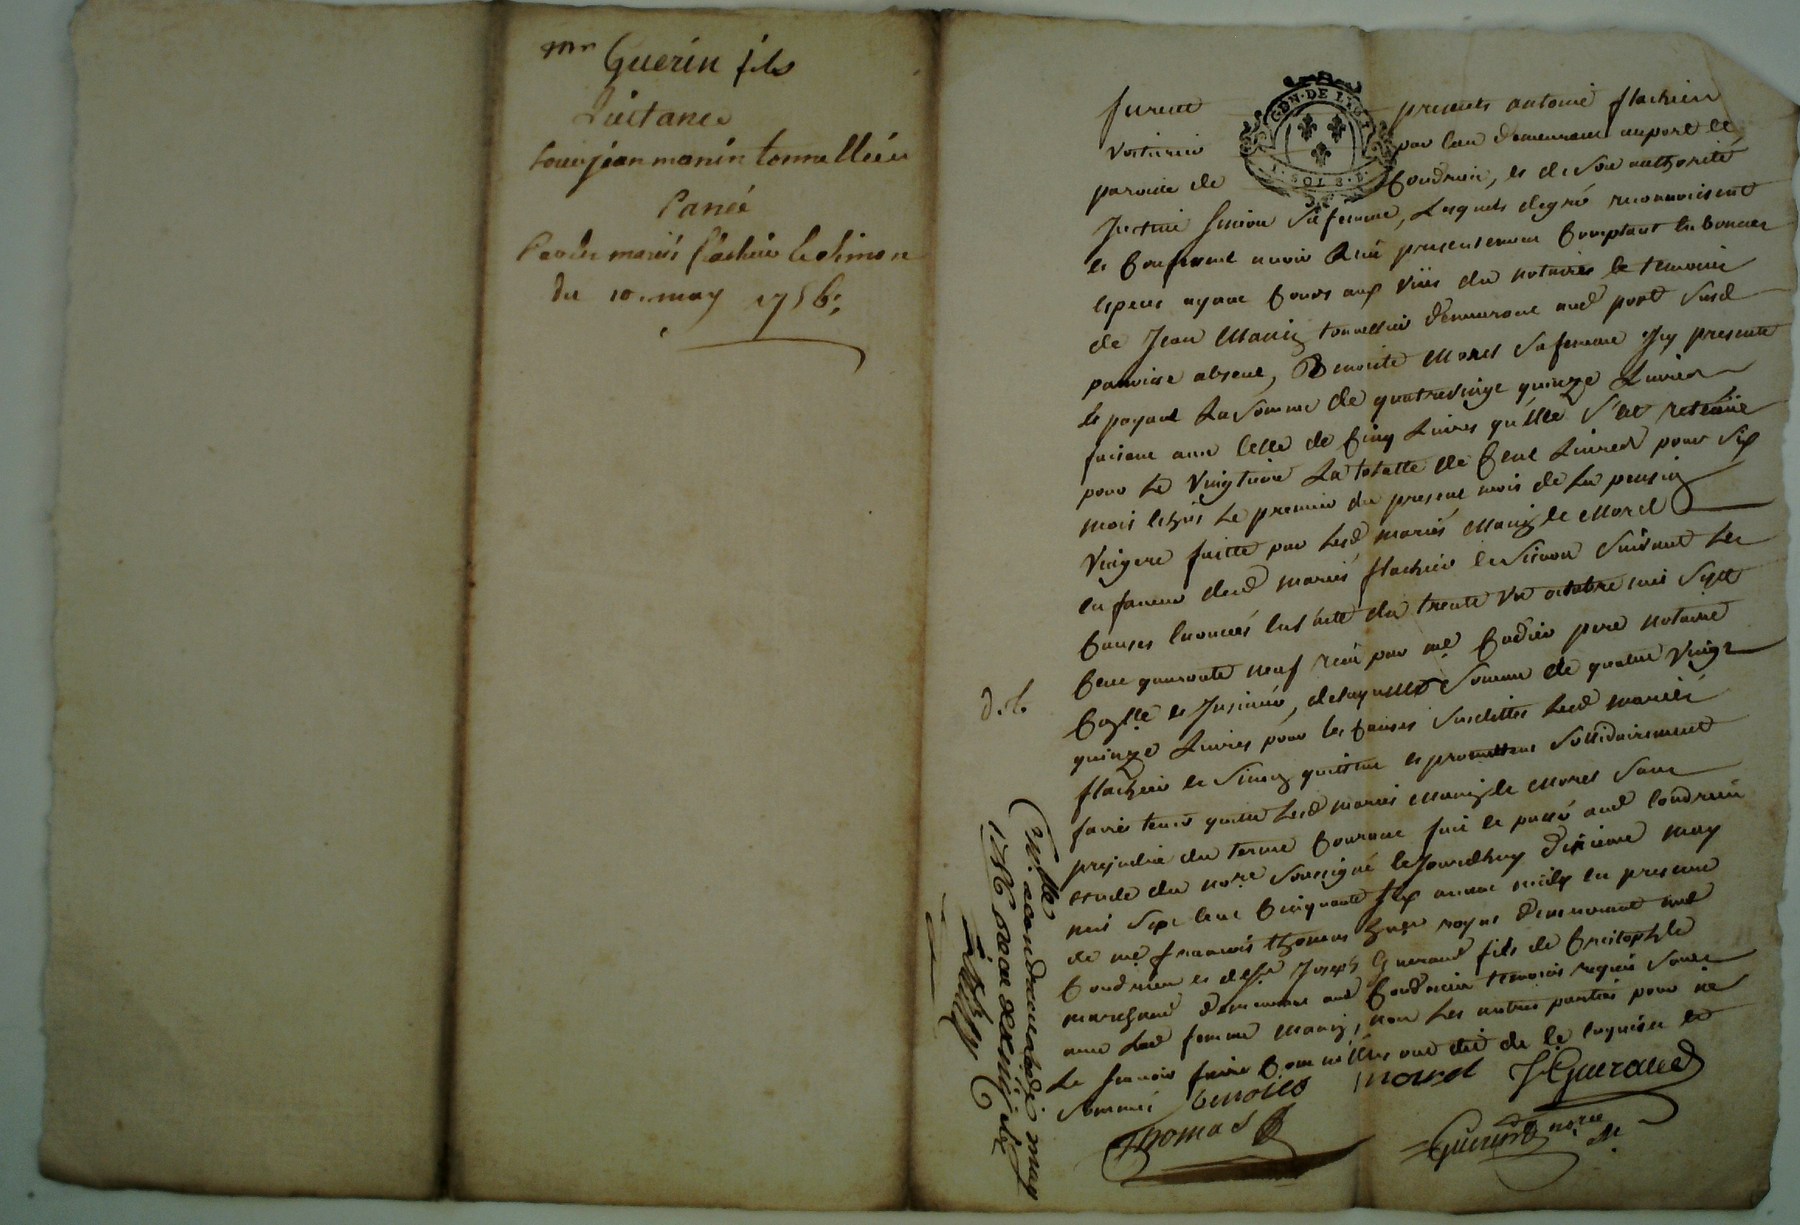 Mre Guerin fils
Quitance
Pour jean manin tonnellier
Passée
Par les mariés flachier & Simon
du 10. may 1756.
furent presents antoine flachier
Voiturier par eau demeurant au port &
paroisse de Condrieu, et de son authorité
Simon sa femme, Lesquels de gré reconnoissent
et Confessent avoir Reçu presentement Comptant en bonnes
especes ayant Cours aux vües du notaire & temoins
de Jean Manin tonnellier demeurant aud port susd
paroisse absent, Benoite Morel sa femme Icy presente
& payant La Somme de quatrevingt quinze Livres
faisant avec Celle de Cinq Livres qu'elle s'est retenüe
pour Le Vingtieme La totalle de Cent Livres pour six
mois échus Le premier du present mois de La pension
Viagere faitte par Lesd mariés Manin & Morel
en faveur desd mariés flachier & Simon suivant Les
Causes enoncées en l'acte du trente un octobre mil sept
Cent quarante neuf reçu par me Cadier pere notaire
Controllé et Insinué, de laquelle Somme de quatre vingt
quinze Livres pour les Causes susdittes Lesd mariés
flachier & Simon quittent et promettent sollidairement
faire tenir quitte Lesd mariés Manin & Morel sans
prejudice du terme Courant fait & passé aud Condrieu
etude du nore soussigné Le Jourdhuy dixieme may
mil sept Cent Cinquante six avant midy en presence
de me francois thomas demeurant aud
Condrieu et de Sr Joseph Gueraud fils de Cristophle
marchand demeurant aud Condrieu temoins requis Soussignés
avec Lad femme Manin, non Les autres parties pour ne
Le scavoir faire Comm'elles ont dit de ce enquises &
Sommés benoite morel J Gueraud
Thomas
Guerin nore
d. C.
Collé a condrieu le dix may
1756 reçu